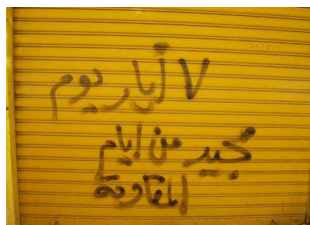 ٧ أيار يوم
مجيد من ايام
المقاومة